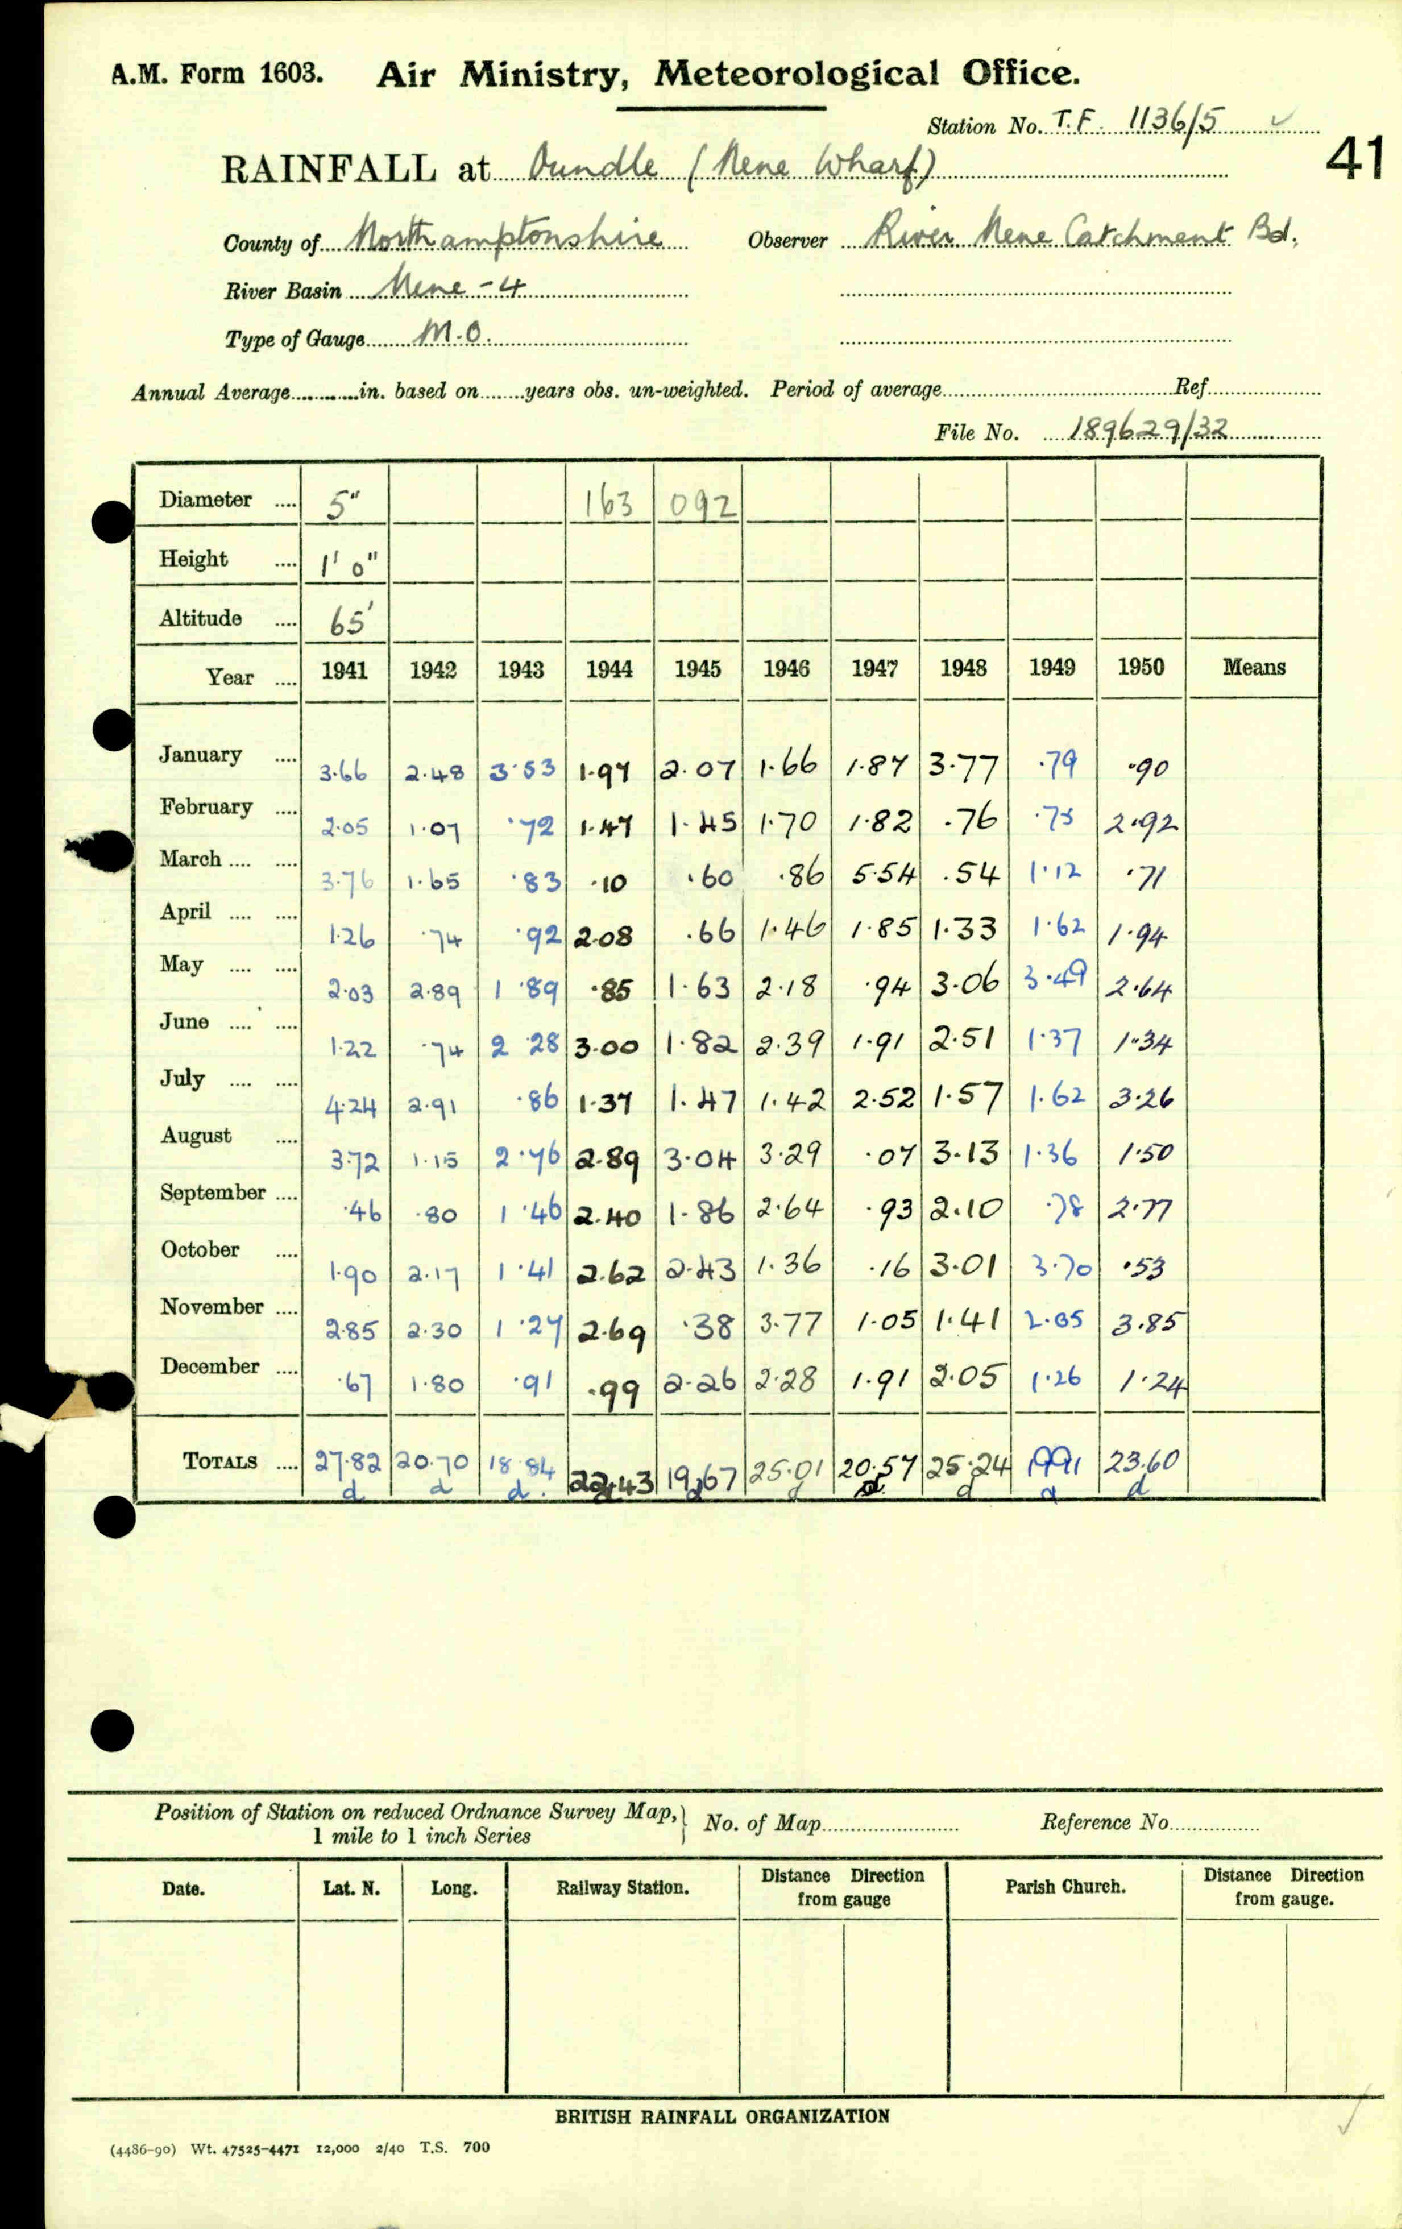 A.M. Form 1603. Air Ministry, Meteorological Office.
Station No. T.F. 1136/5 ✓
41
RAINFALL at Oundle (Nene Wharf)
County of Northamptonshire Observer River Nene Catchment Bd.
River Basin Nene - 4
Type of Gauge M.O.
Annual Average............in. based on.......years obs. un-weighted. Period of average............Ref............
File No. 189629/32
Diameter .... 5" 163 092
Height .... 1' 0"
Altitude .... 65'
Year .... 1941 1942 1943 1944 1945 1946 1947 1948 1949 1950 Means
January .... 3·66 2·48 3·53 1·97 2·07 1·66 1·87 3·77 ·79 ·90
February .... 2·05 1·07 ·72 1·47 1·45 1·70 1·82 ·76 ·75 2·92
March .... .... 3·76 1·65 ·83 ·10 ·60 ·86 5·54 ·54 1·12 ·71
April .... .... 1·26 ·74 ·92 2·08 ·66 1·46 1·85 1·33 1·62 1·94
May .... .... 2·03 2·89 1·89 ·85 1·63 2·18 ·94 3·06 3·49 2·64
June .... .... 1·22 ·74 2·28 3·00 1·82 2·39 1·91 2·51 1·37 1·34
July .... .... 4·24 2·91 ·86 1·37 1·47 1·42 2·52 1·57 1·62 3·26
August .... 3·72 1·15 2·76 2·89 3·04 3·29 ·07 3·13 1·36 1·50
September .... ·46 ·80 1·46 2·40 1·86 2·64 ·93 2·10 ·78 2·77
October .... 1·90 2·17 1·41 2·62 2·43 1·36 ·16 3·01 3·70 ·53
November .... 2·85 2·30 1·27 2·69 ·38 3·77 1·05 1·41 2·05 3·85
December .... ·67 1·80 ·91 ·99 2·26 2·28 1·91 2·05 1·26 1·24
TOTALS .... 27·82 20·70 18·84 22·43 19·67 25·01 20·57 25·24 19·91 23·60
d d d d d d d d d d
Position of Station on reduced Ordnance Survey Map, No. of Map............ Reference No............
1 mile to 1 inch Series
Date. Lat. N. Long. Railway Station. Distance Direction from gauge Parish Church. Distance Direction from gauge.
BRITISH RAINFALL ORGANIZATION
(4486-90) Wt. 47525-4471 12,000 2/40 T.S. 700